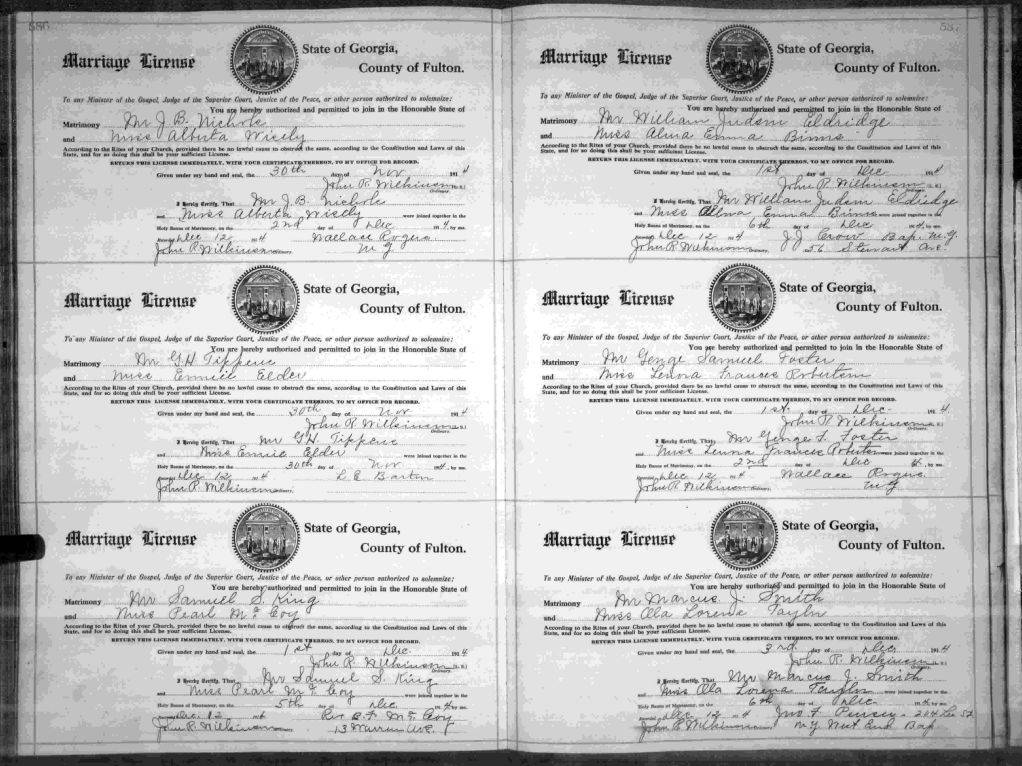 586
Marriage License
State of Georgia,
County of Fulton.
To any Minister of the Gospel, Judge of the Superior Court, Justice of the Peace, or other person authorized to solemnize:
You are hereby authorized and permitted to join in the Honorable State of
Matrimony Mr J. B. Nichols
and Miss Alberta Wisely
According to the Rites of your Church, provided there be no lawful cause to obstruct the same, according to the Constitution and Laws of this
State, and for so doing this shall be your sufficient License.
RETURN THIS LICENSE IMMEDIATELY, WITH YOUR CERTIFICATE THEREON, TO MY OFFICE FOR RECORD.
Given under my hand and seal, the 30th day of Nov 1914
John R. Wilkinson
Ordinary.
I Hereby Certify, That Mr J. B. Nichols
and Miss Alberta Wisely were joined together in the
Holy Banns of Matrimony, on the 2nd day of Dec 1914, by me.
Recorded Dec 12 1914 Wallace Rogers
John R. Wilkinson Ordinary. M G
Marriage License
State of Georgia,
County of Fulton.
To any Minister of the Gospel, Judge of the Superior Court, Justice of the Peace, or other person authorized to solemnize:
You are hereby authorized and permitted to join in the Honorable State of
Matrimony Mr G. H. Tippens
and Miss Emmie Elder
According to the Rites of your Church, provided there be no lawful cause to obstruct the same, according to the Constitution and Laws of this
State, and for so doing this shall be your sufficient License.
RETURN THIS LICENSE IMMEDIATELY, WITH YOUR CERTIFICATE THEREON, TO MY OFFICE FOR RECORD.
Given under my hand and seal, the 30th day of Nov 1914
John R. Wilkinson
Ordinary.
I Hereby Certify, That Mr G. H. Tippens
and Miss Emmie Elder were joined together in the
Holy Banns of Matrimony, on the 30th day of Nov 1914, by me.
Recorded Dec 12 1914 L E Barton
John R. Wilkinson Ordinary.
Marriage License
State of Georgia,
County of Fulton.
To any Minister of the Gospel, Judge of the Superior Court, Justice of the Peace, or other person authorized to solemnize:
You are hereby authorized and permitted to join in the Honorable State of
Matrimony Mr Samuel S. King
and Miss Pearl McCoy
According to the Rites of your Church, provided there be no lawful cause to obstruct the same, according to the Constitution and Laws of this
State, and for so doing this shall be your sufficient License.
RETURN THIS LICENSE IMMEDIATELY, WITH YOUR CERTIFICATE THEREON, TO MY OFFICE FOR RECORD.
Given under my hand and seal, the 1st day of Dec 1914
John R. Wilkinson
Ordinary.
I Hereby Certify, That Mr Samuel S. King
and Miss Pearl McCoy were joined together in the
Holy Banns of Matrimony, on the 5th day of Dec 1914, by me.
Recorded Dec. 12 1914 Rev. McCoy
John R. Wilkinson Ordinary. 13 Warren Ave.
Marriage License
State of Georgia,
County of Fulton.
To any Minister of the Gospel, Judge of the Superior Court, Justice of the Peace, or other person authorized to solemnize:
You are hereby authorized and permitted to join in the Honorable State of
Matrimony Mr William Judson Eldridge
and Miss Alma Emma Binns
According to the Rites of your Church, provided there be no lawful cause to obstruct the same, according to the Constitution and Laws of this
State, and for so doing this shall be your sufficient License.
RETURN THIS LICENSE IMMEDIATELY, WITH YOUR CERTIFICATE THEREON, TO MY OFFICE FOR RECORD.
Given under my hand and seal, the 1st day of Dec 1914
John R. Wilkinson
I Hereby Certify, That Mr William Judson Eldridge
and Miss Alma Emma Binns were joined together in the
Holy Banns of Matrimony, on the 6th day of Dec 1914, by me.
Recorded Dec 12 1914 J J Crow Bap. M. G.
John R. Wilkinson 56 Stewart Ave.
Marriage License
State of Georgia,
County of Fulton.
To any Minister of the Gospel, Judge of the Superior Court, Justice of the Peace, or other person authorized to solemnize:
You are hereby authorized and permitted to join in the Honorable State of
Matrimony Mr George Samuel Foster
and Miss Lenora Frances Robertson
According to the Rites of your Church, provided there be no lawful cause to obstruct the same, according to the Constitution and Laws of this
State, and for so doing this shall be your sufficient License.
RETURN THIS LICENSE IMMEDIATELY, WITH YOUR CERTIFICATE THEREON, TO MY OFFICE FOR RECORD.
Given under my hand and seal, the 1st day of Dec 1914
John R. Wilkinson
Ordinary.
I Hereby Certify, That Mr George S. Foster
and Miss Lenora Frances were joined together in the
Holy Banns of Matrimony, on the 2nd day of Dec 1914, by me.
Recorded Dec 12 1914 Wallace Rogers
John R. Wilkinson Ordinary. M G
Marriage License
State of Georgia,
County of Fulton.
To any Minister of the Gospel, Judge of the Superior Court, Justice of the Peace, or other person authorized to solemnize:
You are hereby authorized and permitted to join in the Honorable State of
Matrimony Mr Marcus J. Smith
and Miss Ola Lorena Taylor
According to the Rites of your Church, provided there be no lawful cause to obstruct the same, according to the Constitution and Laws of this
State, and for so doing this shall be your sufficient License.
RETURN THIS LICENSE IMMEDIATELY, WITH YOUR CERTIFICATE THEREON, TO MY OFFICE FOR RECORD.
Given under my hand and seal, the 3rd day of Dec 1914
John R. Wilkinson
Ordinary.
I Hereby Certify, That Mr Marcus J. Smith
and Miss Ola Lorena Taylor were joined together in the
Holy Banns of Matrimony, on the 6th day of Dec 1914, by me.
Recorded Dec 12 1914 Jno F Pursey - 204 Lee St
John R. Wilkinson M. G. West End Bap